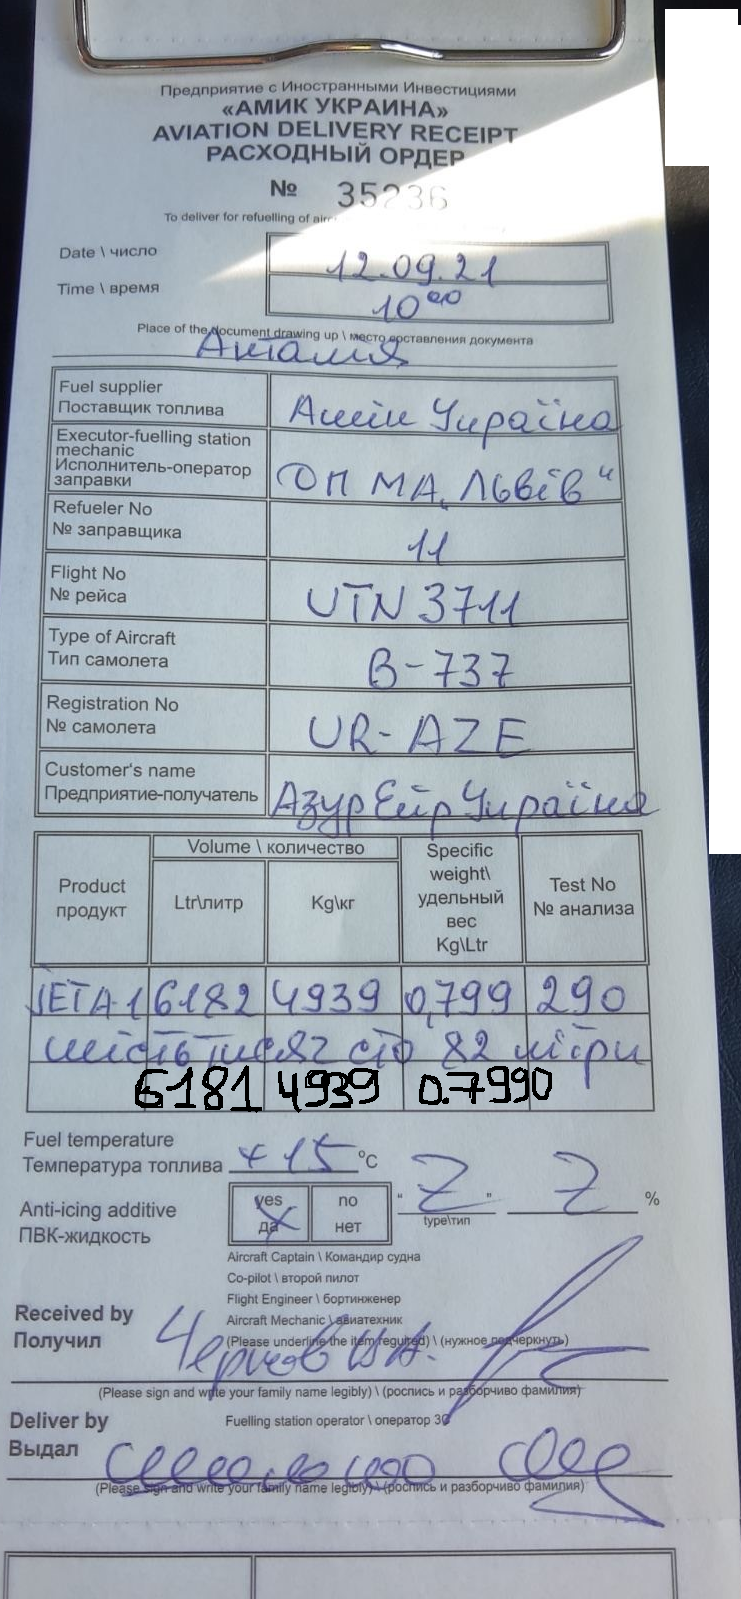 Предприятие с Иностранными Инвестициями
«АМИК УКРАИНА»
AVIATION DELIVERY RECEIPT
РАСХОДНЫЙ ОРДЕР
№ 35236
To deliver for refuelling of
Date \ число 12.09.21
Time \ время 10 00
Place of the document drawing up \ место составления документа
Анталия
Fuel supplier
Поставщик топлива
Амік Україна
Executor-fuelling station
mechanic
Исполнитель-оператор
заправки
ОП МА "Львів"
Refueler No
№ заправщика
11
Flight No
№ рейса
UTN 3711
Type of Aircraft
Тип самолета
B-737
Registration No
№ самолета
UR-AZE
Customer's name
Предприятие-получатель
Азур Ейр Україна
Product
продукт
Volume \ количество
Ltr\литр
Kg\кг
Specific
weight\
удельный
вес
Kg\Ltr
Test No
№ анализа
JETA-1 6182 4939 0,799 290
шість тисяч сто 82 літри
6181 4939 0.7990
Fuel temperature
Температура топлива +15 °C
Anti-icing additive
ПВК-жидкость
yes
да
no
нет
" Z " Z %
type\тип
Aircraft Captain \ Командир судна
Co-pilot \ второй пилот
Flight Engineer \ бортинженер
Aircraft Mechanic \ авиатехник
(Please underline the item reguired) \ (нужное подчеркнуть)
Received by
Получил
(Please sign and write your family name legibly) \ (роспись и разборчиво фамилия)
Deliver by
Выдал
Fuelling station operator \ оператор ЗС
(Please sign and write your family name legibly) \ (роспись и разборчиво фамилия)